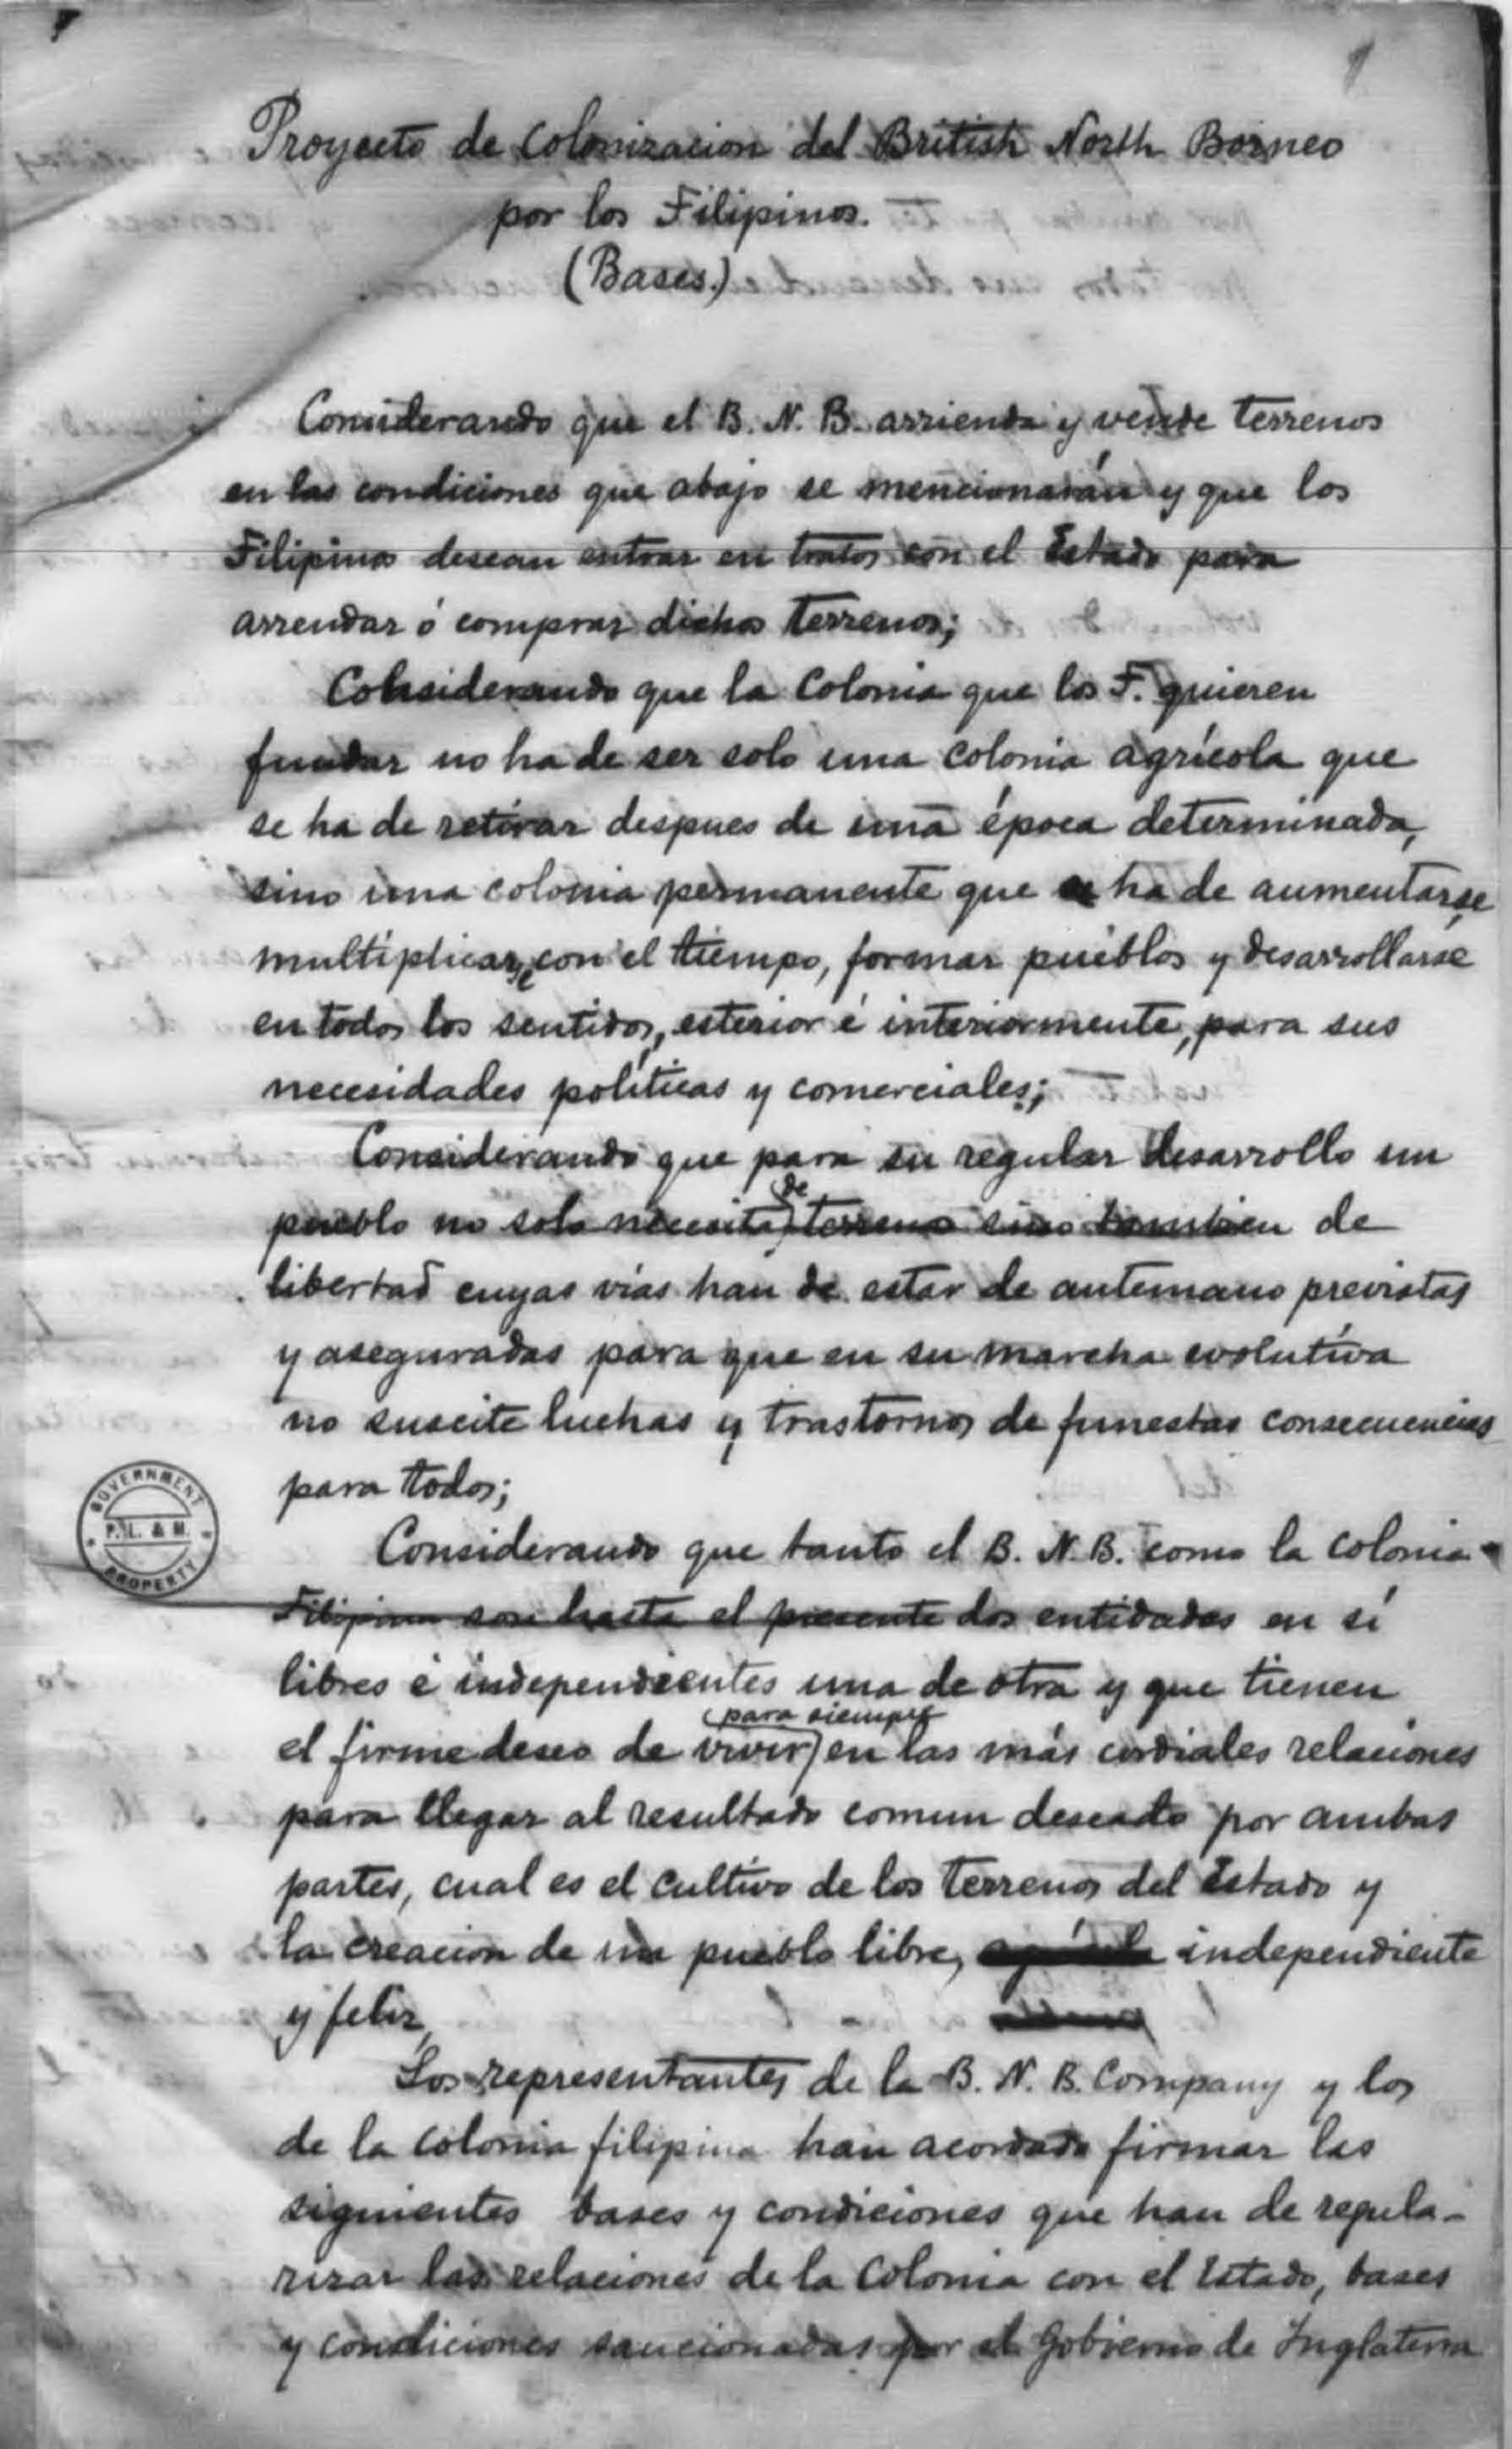 1
Proyecto de Colonizacion del British North Borneo
por los Filipinos.
(Bases.)
Considerando que el B. N. B. arrienda y vende terrenos
en las condiciones que abajo se mencionarán y que los
Filipinos desean entrar en tratos con el Estado para
arrendar ó comprar dichos terrenos;
Considerando que la Colonia que los F. quieren
fundar no ha de ser solo una colonia agrícola que
se ha de retirar despues de una época determinada,
sino una colonia permanente que ha de aumentarse,
multiplicarse con el tiempo, formar pueblos y desarrollarse
en todos los sentidos, esterior é interiormente, para sus
necesidades políticas y comerciales;
Considerando que para su regular desarrollo un
pueblo no solo necesita de terreno sino tambien de
libertad cuyas vías han de estar de antemano previstas
y aseguradas para que en su marcha evolutiva
no suscite luchas y trastornos de funestas consecuencias
para todos;
GOVERNMENT
P. L. & M.
PROPERTY
Considerando que tanto el B. N. B. como la colonia
Filipina son hasta el presente dos entidades en sí
libres é independientes una de otra y que tienen
el firme deseo de vivir para siempre en las más cordiales relaciones
para llegar al resultado comun deseado por ambas
partes, cual es el cultivo de los terrenos del Estado y
la creacion de un pueblo libre, independiente
y feliz,
Los representantes de la B. N. B. Company y los
de la colonia filipina han acordado firmar las
siguientes bases y condiciones que han de regula-
rizar las relaciones de la Colonia con el Estado, bases
y condiciones sancionadas por el Gobierno de Inglaterra